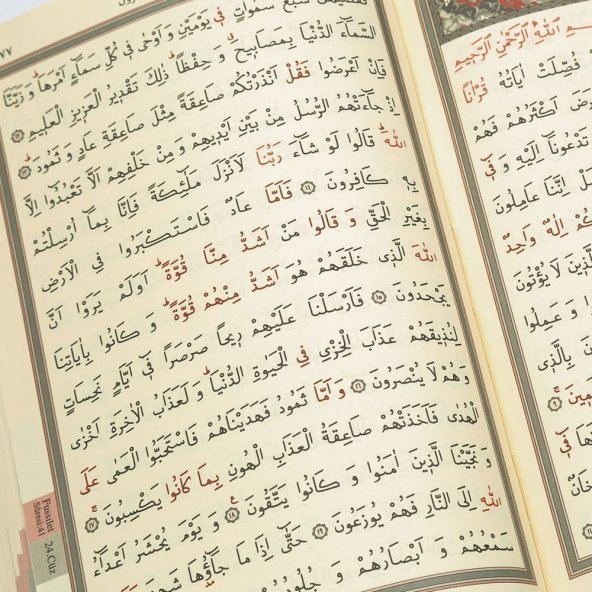 اللّٰهِ الرَّحْمٰنِ الرَّحِيمِ
فُصِّلَتْ اٰيَاتُهُ قُرْاٰنًا
اَكْثَرُهُمْ فَهُمْ
تَدْعُونَا اِلَيْهِ وَ فِي
اِنَّنَا عَامِلُونَ
اِلٰهٌ وَاحِدٌ
لَا يُؤْتُونَ
وَ عَمِلُوا
بِالَّذِي
فِي
٧٧
سَمٰوَاتٍ فِي يَوْمَيْنِ وَ اَوْحٰى فِي كُلِّ سَمَٓاءٍ اَمْرَهَا وَ زَيَّنَّا
السَّمَٓاءَ الدُّنْيَا بِمَصَابِيحَ وَ حِفْظًا ذٰلِكَ تَقْدِيرُ الْعَزِيزِ الْعَلِيمِ ١٢
فَاِنْ اَعْرَضُوا فَقُلْ اَنْذَرْتُكُمْ صَاعِقَةً مِثْلَ صَاعِقَةِ عَادٍ وَ ثَمُودَ ١٣
اِذْ جَٓاءَتْهُمُ الرُّسُلُ مِنْ بَيْنِ اَيْدِيهِمْ وَ مِنْ خَلْفِهِمْ اَلَّا تَعْبُدُٓوا اِلَّا
اللّٰهَ قَالُوا لَوْ شَٓاءَ رَبُّنَا لَاَنْزَلَ مَلٰٓئِكَةً فَاِنَّا بِمَٓا اُرْسِلْتُمْ
بِهِ كَافِرُونَ ١٤ فَاَمَّا عَادٌ فَاسْتَكْبَرُوا فِي الْاَرْضِ
بِغَيْرِ الْحَقِّ وَ قَالُوا مَنْ اَشَدُّ مِنَّا قُوَّةً اَوَلَمْ يَرَوْا اَنَّ
اللّٰهَ الَّذِي خَلَقَهُمْ هُوَ اَشَدُّ مِنْهُمْ قُوَّةً وَ كَانُوا بِاٰيَاتِنَا
يَجْحَدُونَ ١٥ فَاَرْسَلْنَا عَلَيْهِمْ رِيحًا صَرْصَرًا فِٓي اَيَّامٍ نَحِسَاتٍ
لِنُذِيقَهُمْ عَذَابَ الْخِزْيِ فِي الْحَيٰوةِ الدُّنْيَا وَ لَعَذَابُ الْاٰخِرَةِ اَخْزٰى
وَ هُمْ لَا يُنْصَرُونَ ١٦ وَ اَمَّا ثَمُودُ فَهَدَيْنَاهُمْ فَاسْتَحَبُّوا الْعَمٰى عَلَى
الْهُدٰى فَاَخَذَتْهُمْ صَاعِقَةُ الْعَذَابِ الْهُونِ بِمَا كَانُوا يَكْسِبُونَ ١٧
وَ نَجَّيْنَا الَّذِينَ اٰمَنُوا وَ كَانُوا يَتَّقُونَ ١٨ وَ يَوْمَ يُحْشَرُ اَعْدَٓاءُ
اللّٰهِ اِلَى النَّارِ فَهُمْ يُوزَعُونَ ١٩ حَتّٰٓى اِذَا مَا جَٓاؤُ۫هَا شَهِدَ
سَمْعُهُمْ وَ اَبْصَارُهُمْ وَ جُلُودُهُمْ
Fussilet 24.Cüz
Sûresi:41